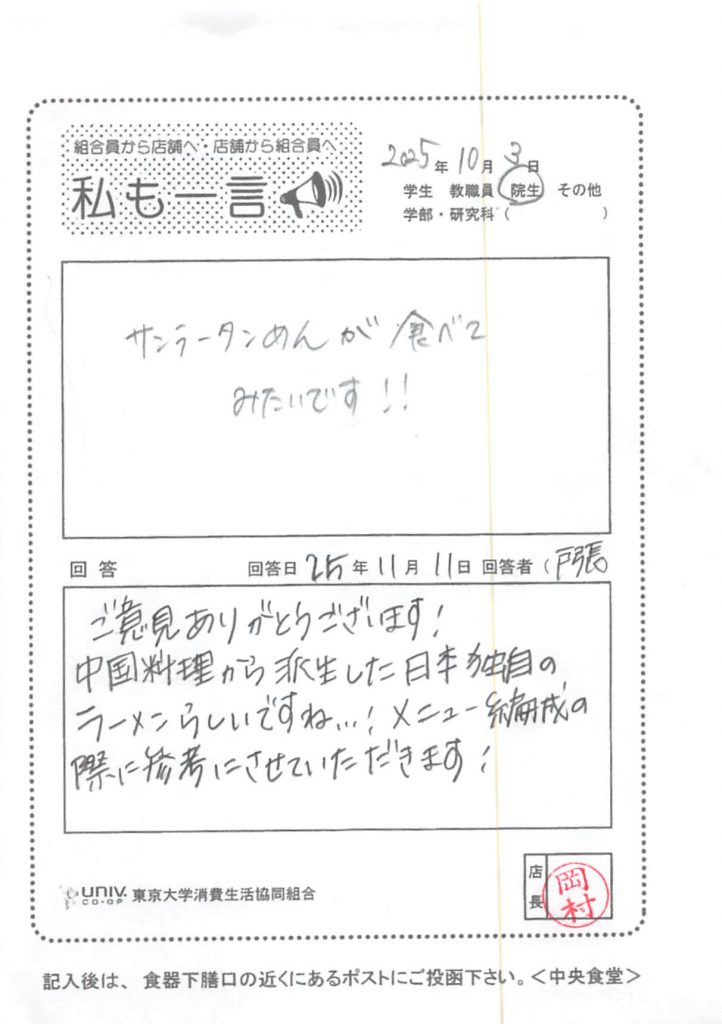 組合員から店舗へ・店舗から組合員へ
私も一言
2025年10月3日
学生 教職員 院生 その他
学部・研究科（ ）
サンラータンめんが食べて
みたいです!!
回答 回答日 25年11月11日 回答者（戸張
ご意見ありがとうございます!
中国料理から派生した日本独自の
ラーメンらしいですね...! メニュー編成の
際に参考にさせていただきます!
UNIV. CO-OP 東京大学消費生活協同組合
店長
岡村
記入後は、食器下膳口の近くにあるポストにご投函下さい。＜中央食堂＞